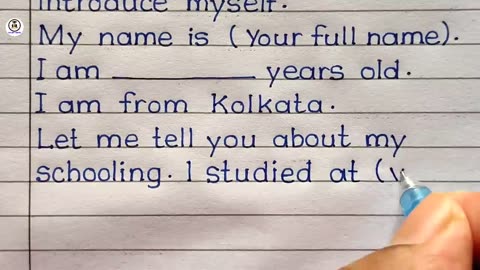 introduce myself.
My name is (Your full name).
I am __________ years old.
I am from Kolkata.
Let me tell you about my
schooling. I studied at (